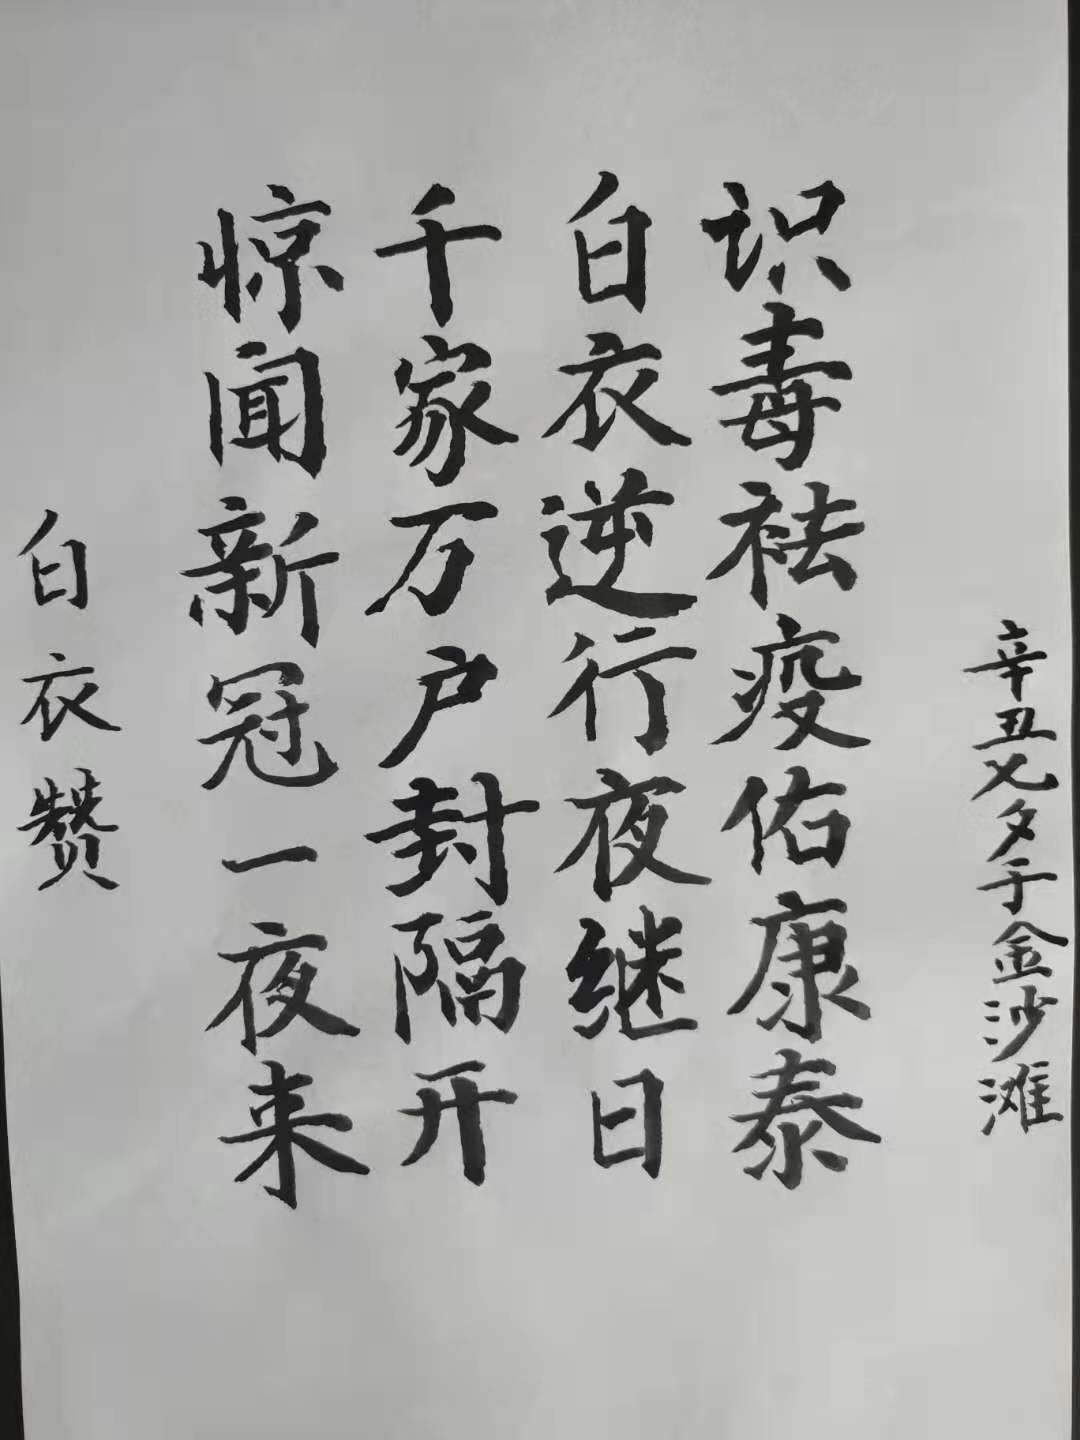 白衣赞
惊闻新冠一夜来
千家万户封隔开
白衣逆行夜继日
识毒祛疫佑康泰
辛丑夕于金沙滩